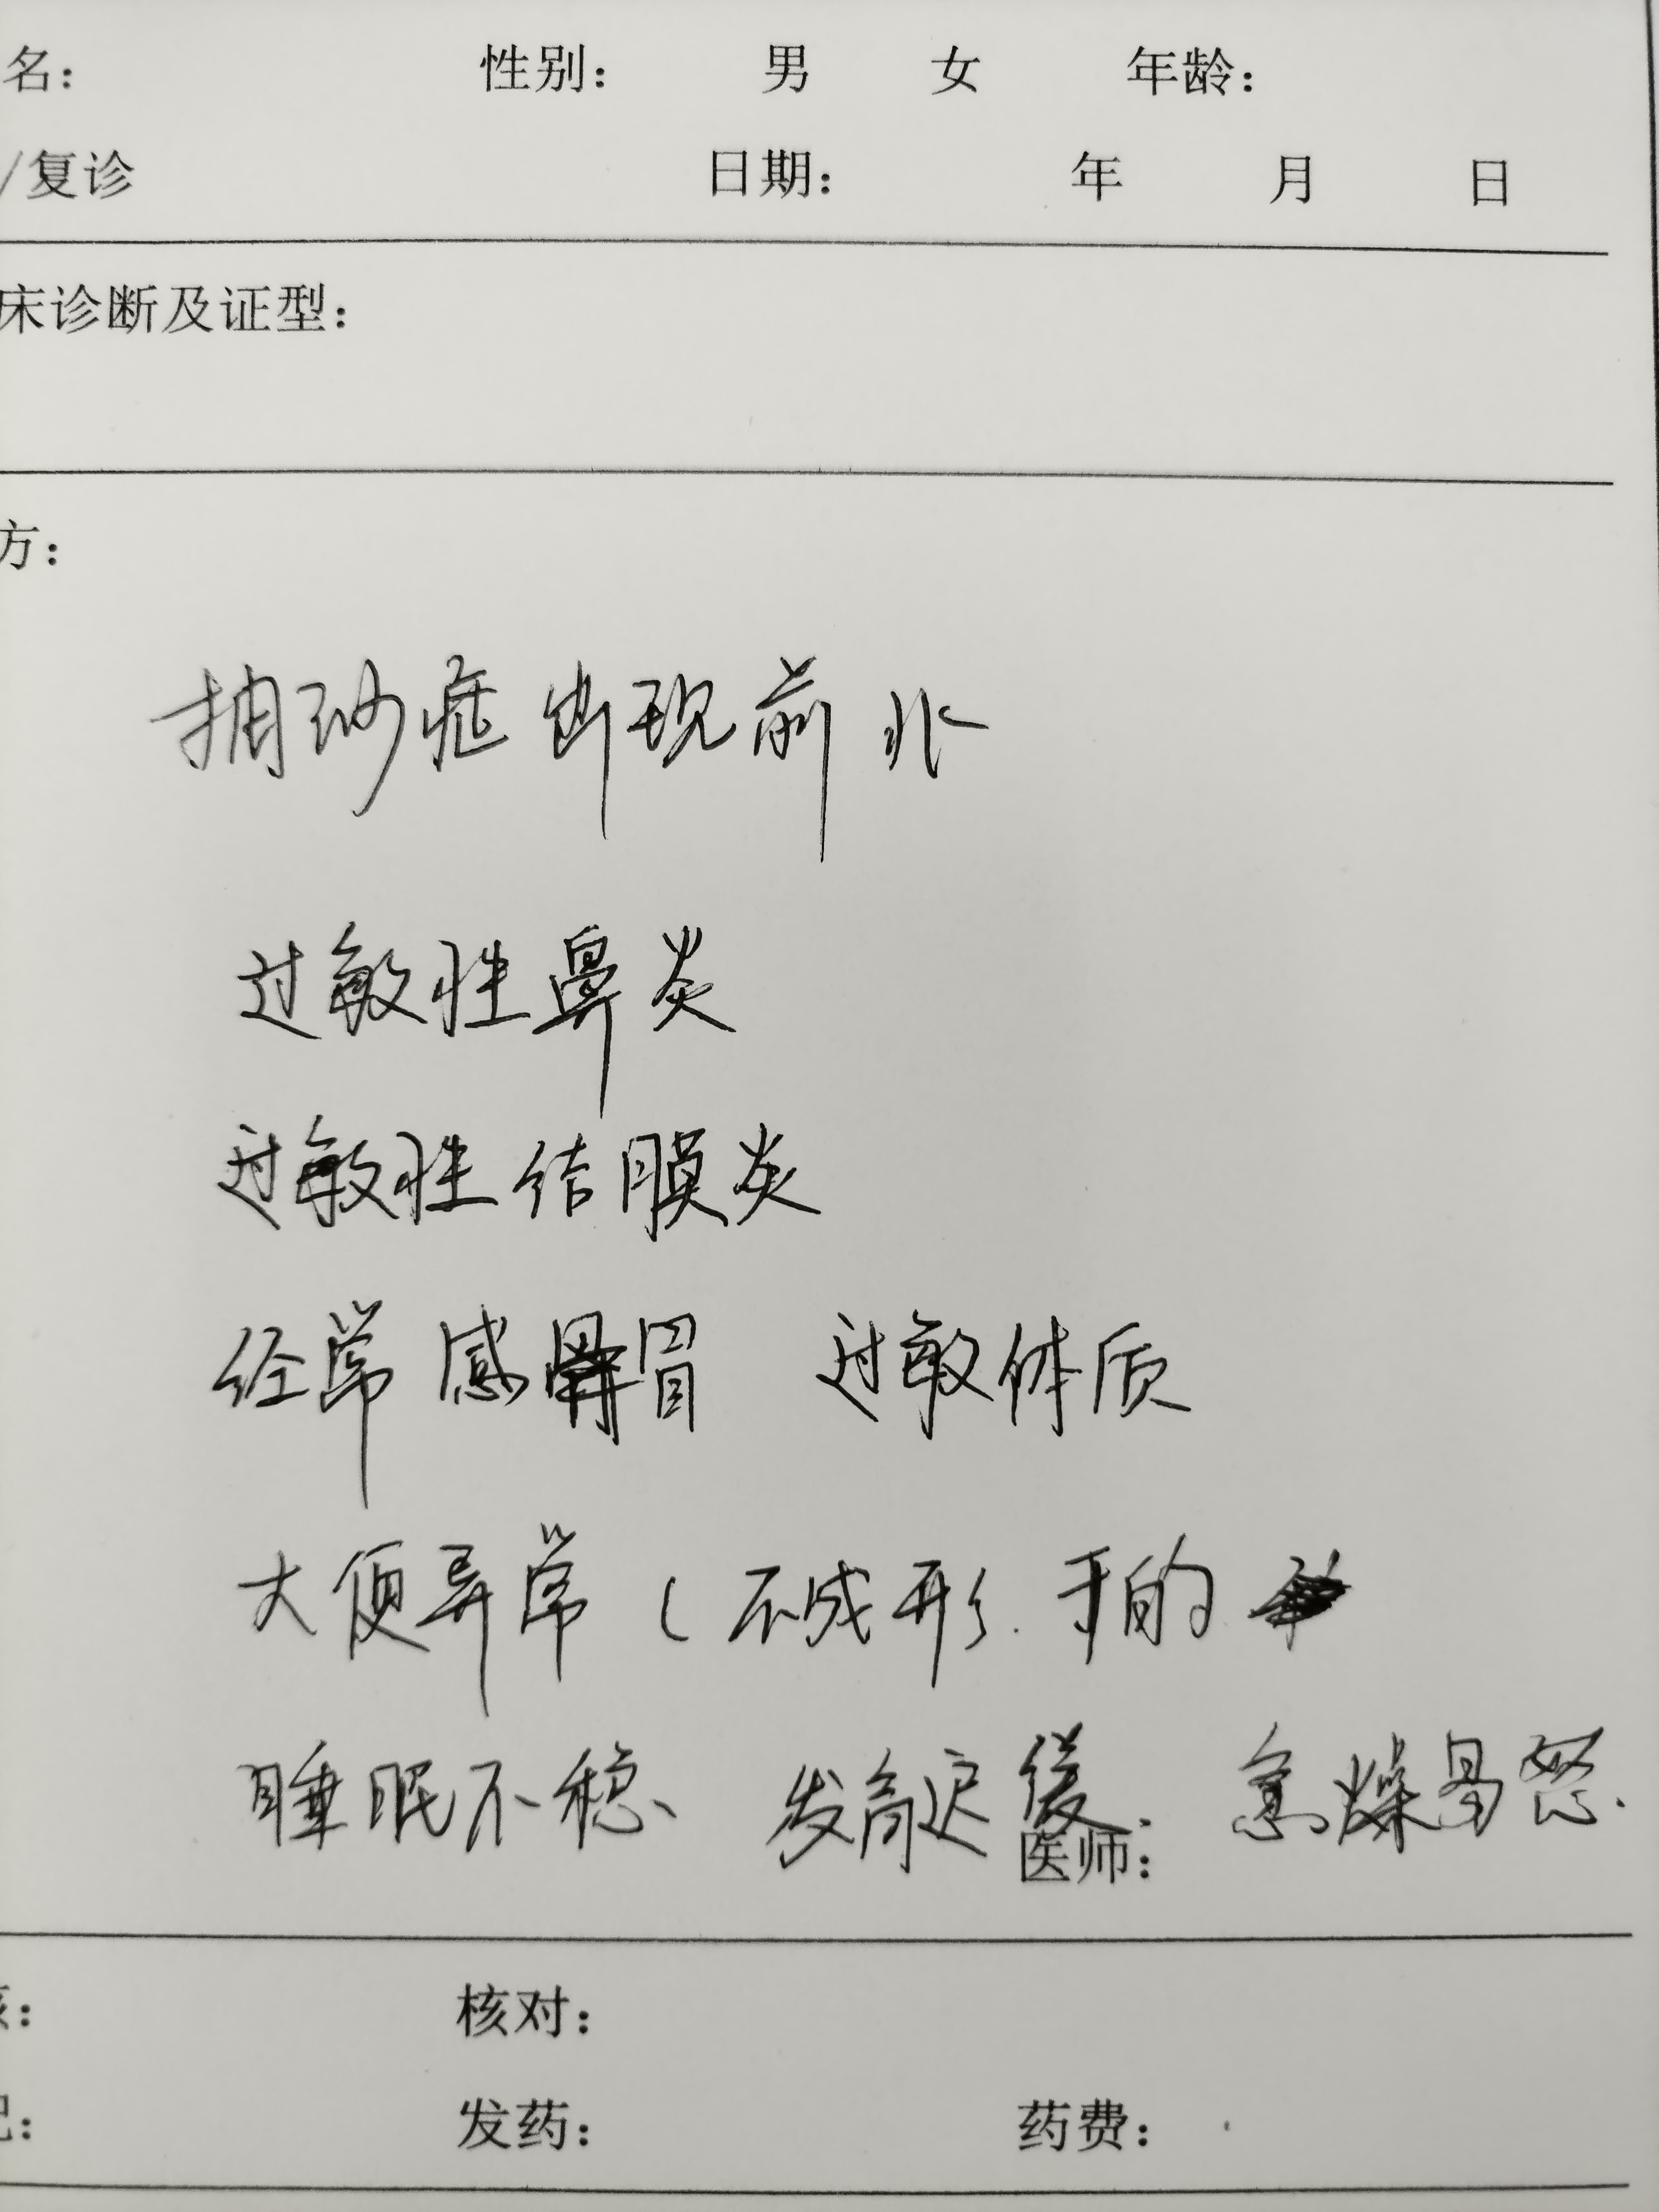 名： 性别： 男 女 年龄：
/复诊 日期： 年 月 日
床诊断及证型：
方：
症出现前兆
过敏性鼻炎
过敏性结膜炎
经常感冒 过敏体质
大便异常（不成形. 干的
睡眠不稳、 发育迟缓. 急燥易怒.
医师：
核对：
发药： 药费：